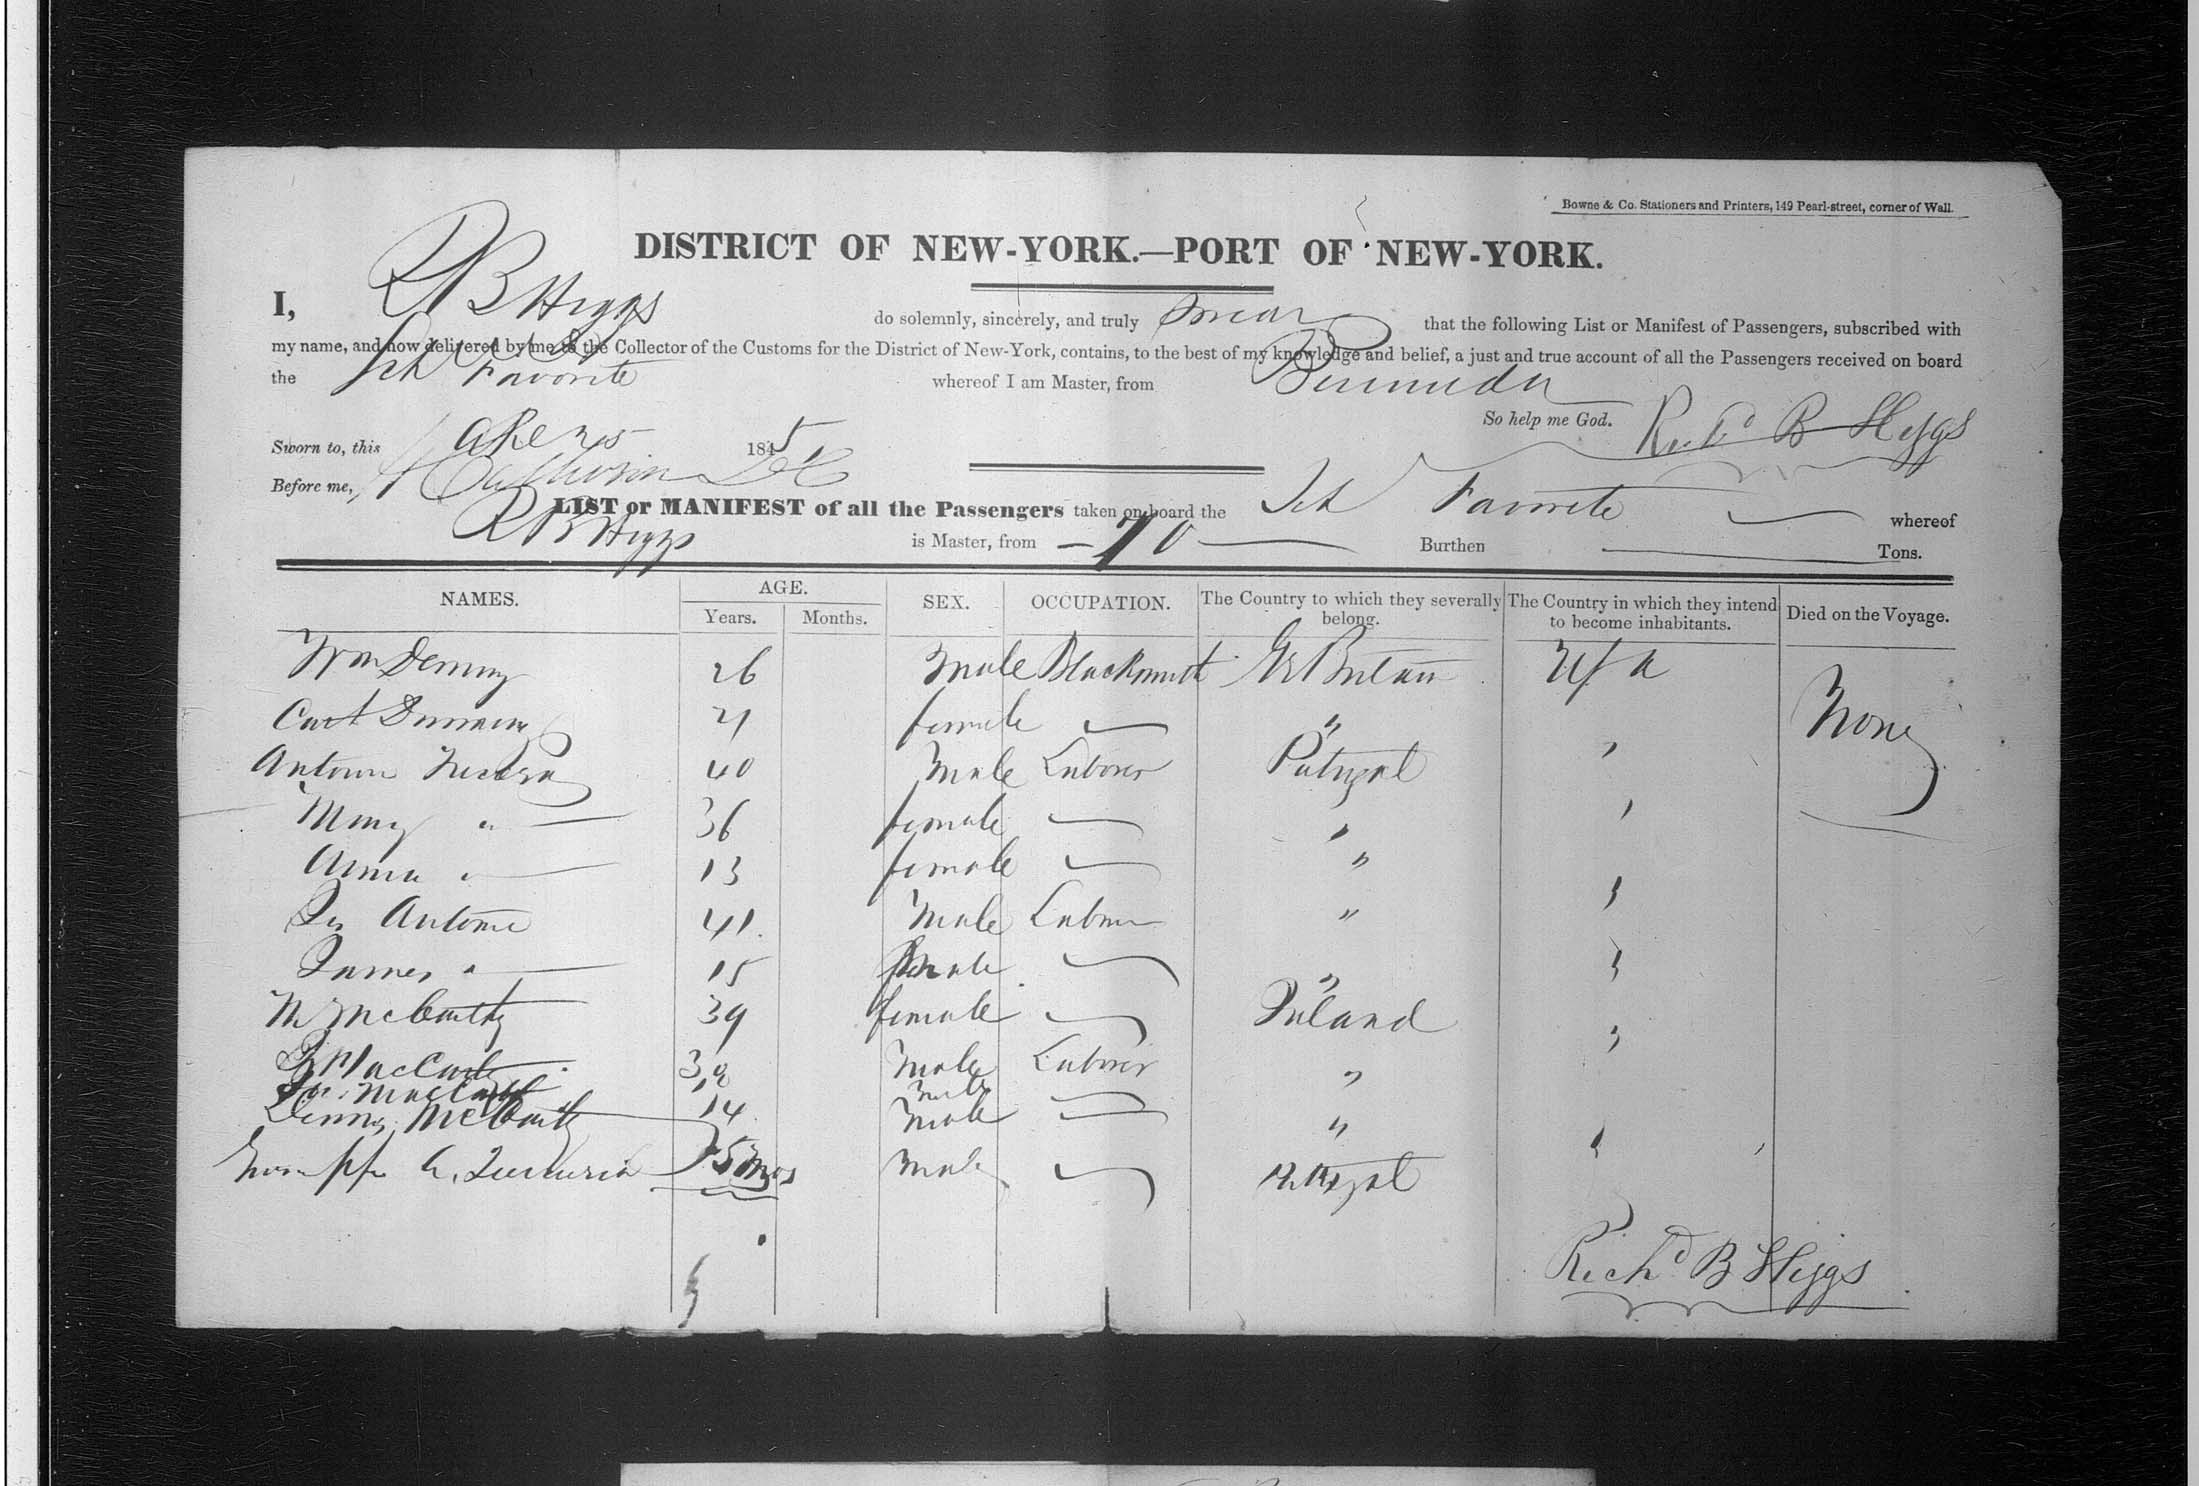 Bowne & Co. Stationers and Printers, 149 Pearl-street, corner of Wall.
DISTRICT OF NEW-YORK.—PORT OF NEW-YORK.
I, R B Higgs do solemnly, sincerely, and truly swear that the following List or Manifest of Passengers, subscribed with
my name, and now delivered by me to the Collector of the Customs for the District of New-York, contains, to the best of my knowledge and belief, a just and true account of all the Passengers received on board
the Sch Favorite whereof I am Master, from Bermuda
So help me God. Richd B Higgs
Sworn to, this 25 1845
Before me,
LIST or MANIFEST of all the Passengers taken on board the Sch Favorite whereof
R B Higgs is Master, from — 70 — Burthen Tons.
NAMES. AGE. SEX. OCCUPATION. The Country to which they severally belong. The Country in which they intend to become inhabitants. Died on the Voyage.
Years. Months.
Wm 26 male Blacksmith Gt Britain USA None
21 female "
40 Male Laborer Portugal "
Mary " 36 female "
" 13 female "
Antonie 41 Male "
James " 15 male "
M McCarthy 39 female Ireland "
Male Laborer "
male
Dennis McCarthy 14 Male "
5 mos Male Portugal "
Richd B Higgs